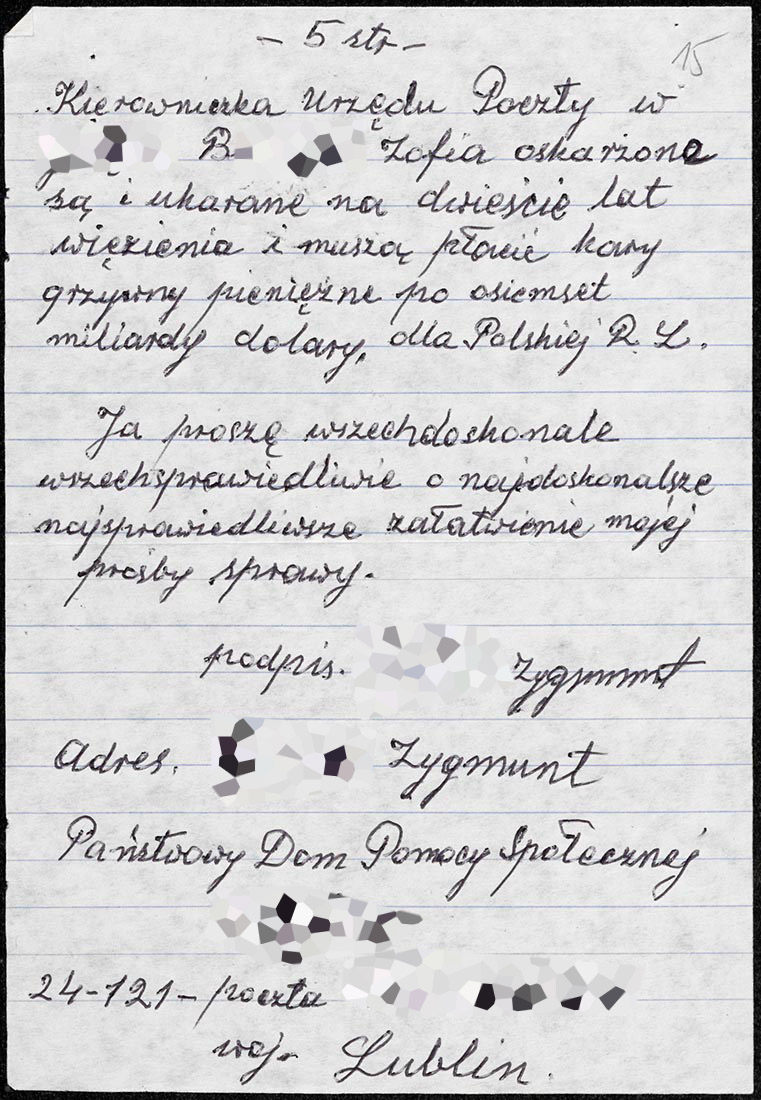 - 5 str -
15
Kierowniczka Urzędu Poczty w
B Zofia oskarżone
są i ukarane na dwieście lat
więzienia i muszą płacić kary
grzywny pieniężne po osiemset
miliardy dolary, dla Polskiej R. L.
Ja proszę wszechdoskonale
wszechsprawiedliwie o najdoskonalsze
najsprawiedliwsze załatwienie mojej
prośby sprawy.
podpis. Zygmunt
Adres. Zygmunt
Państwowy Dom Pomocy Społecznej
24-121- poczta
woj. Lublin.